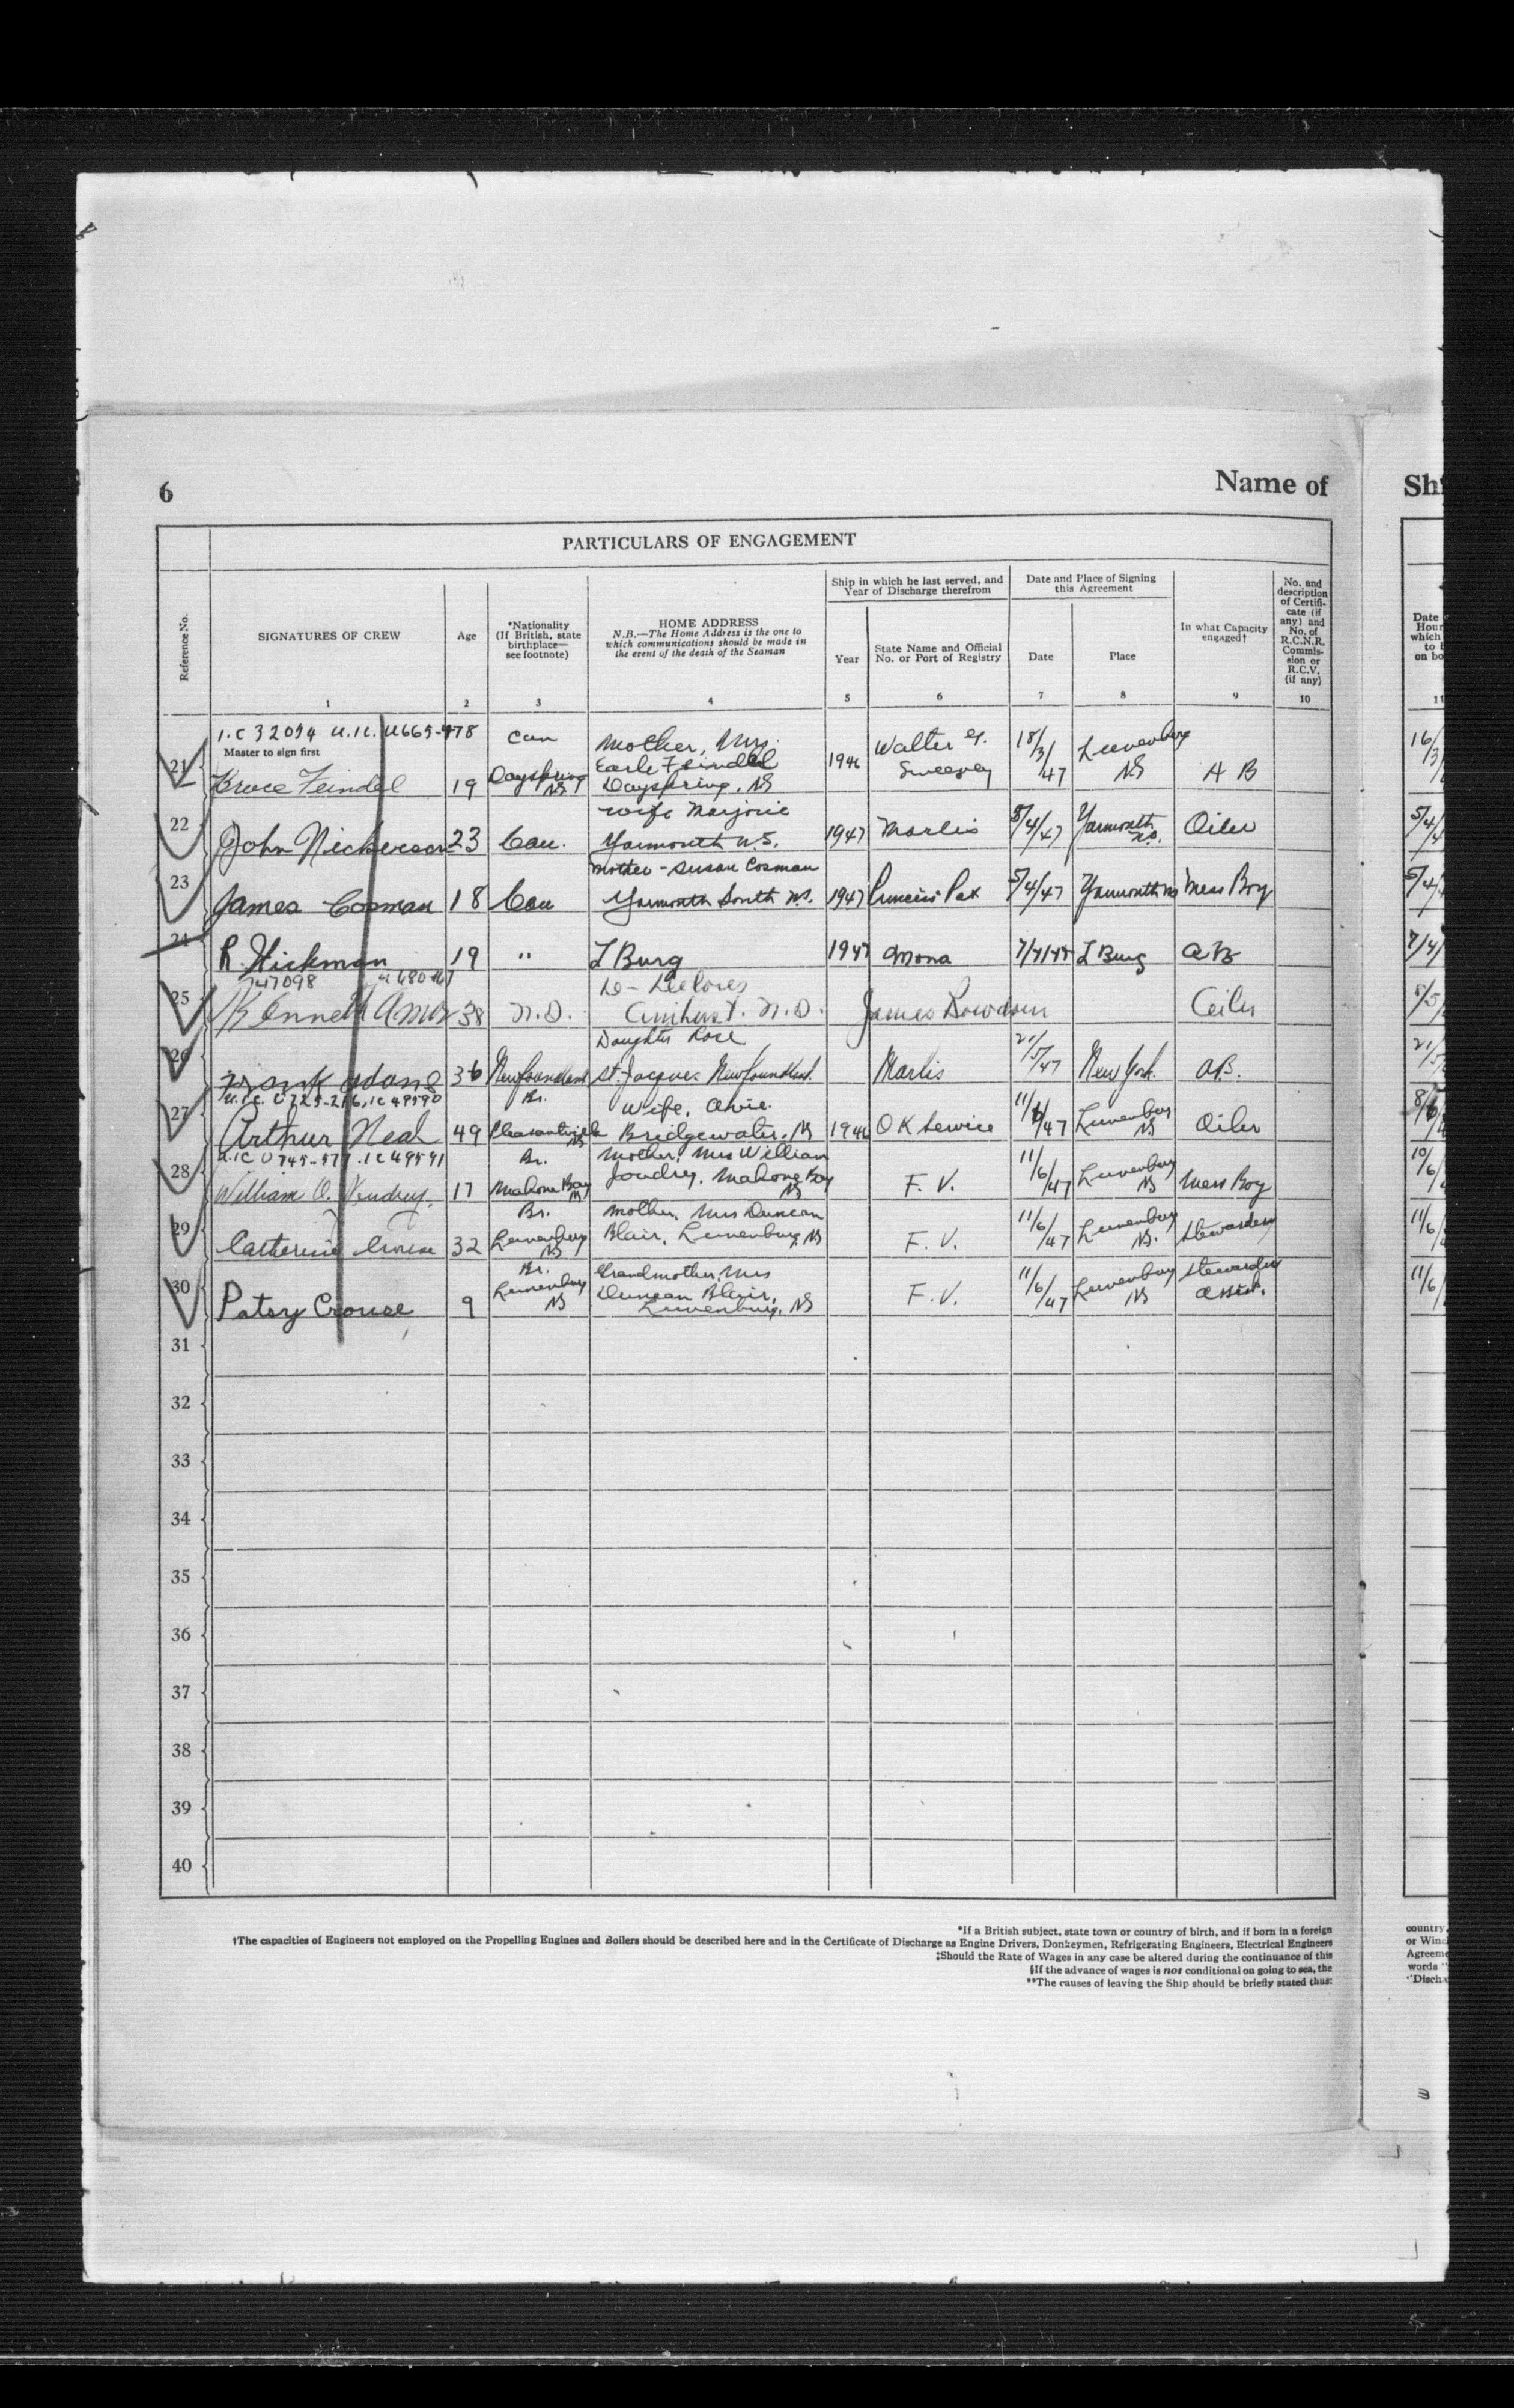 6
Name of
Shi
PARTICULARS OF ENGAGEMENT
Reference No.
SIGNATURES OF CREW
1
Age
2
*Nationality
(If British, state
birthplace—
see footnote)
3
HOME ADDRESS
N.B.—The Home Address is the one to
which communications should be made in
the event of the death of the Seaman
4
Ship in which he last served, and
Year of Discharge therefrom
Year
5
State Name and Official
No. or Port of Registry
6
Date and Place of Signing
this Agreement
Date
7
Place
8
In what Capacity
engaged†
9
No. and
description
of Certifi-
cate (if
any) and
No. of
R.C.N.R.
Commis-
sion or
R.C.V.
(if any)
10
Date
Hour
which
to b
on bo
11
1.C 32094 U.1C. U665-978
Master to sign first
21 Bruce Feindel 19 Can Dayspring NS
Mother, Mrs.
Earle Feindel
Dayspring, NS
1946 Walter G. Sweeney 18/3/47 Lunenburg NS A B 16/3/
22 John Nickerson 23 Can.
Wife Marjorie
Yarmouth N.S. 1947 Marlis 5/4/47 Yarmouth N.S. Oiler 5/4/4
23 James Cosman 18 Can
Mother - Susan Cosman
Yarmouth South N.S. 1947 Princess Pat 5/4/47 Yarmouth NS Mess Boy 5/4/
24 R. Hickman 19 " L Burg 1947 Mona 7/4/47 L Burg AB 7/4/
747098
25 Kenneth 38 N.S.
Delores
Amherst. N.S. James Oiler 8/5/
26 Frank Adams 36 Newfoundland
Daughter Rose
St. Jacques Newfoundland. Marlis 21/5/47 New York. AB. 21/5
U.I.C. U 725-216, 1C 49590
27 Arthur Neal 49 Br. Pleasantville NS
Wife, Avie.
Bridgewater, NS 1946 O K Service 11/6/47 Lunenburg NS Oiler 8/6/
U.IC U745-577. IC 49591
28 William O. 17 Br. Mahone Bay NS
Mother, Mrs William
Joudrey, Mahone Bay
NS F. V. 11/6/47 Lunenburg NS Mess Boy 10/6/
29 Catherine Crouse 32 Br. Lunenburg NS
Mother, Mrs Duncan
Blair, Lunenburg, NS F. V. 11/6/47 Lunenburg NS. Stewardess 11/6/
30 Patsy Crouse 9 Br. Lunenburg NS
Grandmother, Mrs
Duncan Blair,
Lunenburg, NS F. V. 11/6/47 Lunenburg NS Stewardess Asst. 11/6
31
32
33
34
35
36
37
38
39
40
*If a British subject, state town or country of birth, and if born in a foreign
†The capacities of Engineers not employed on the Propelling Engines and Boilers should be described here and in the Certificate of Discharge as Engine Drivers, Donkeymen, Refrigerating Engineers, Electrical Engineers
‡Should the Rate of Wages in any case be altered during the continuance of this
§If the advance of wages is not conditional on going to sea, the
**The causes of leaving the Ship should be briefly stated thus:
country,
or Winc
Agreeme
words "
"Discha